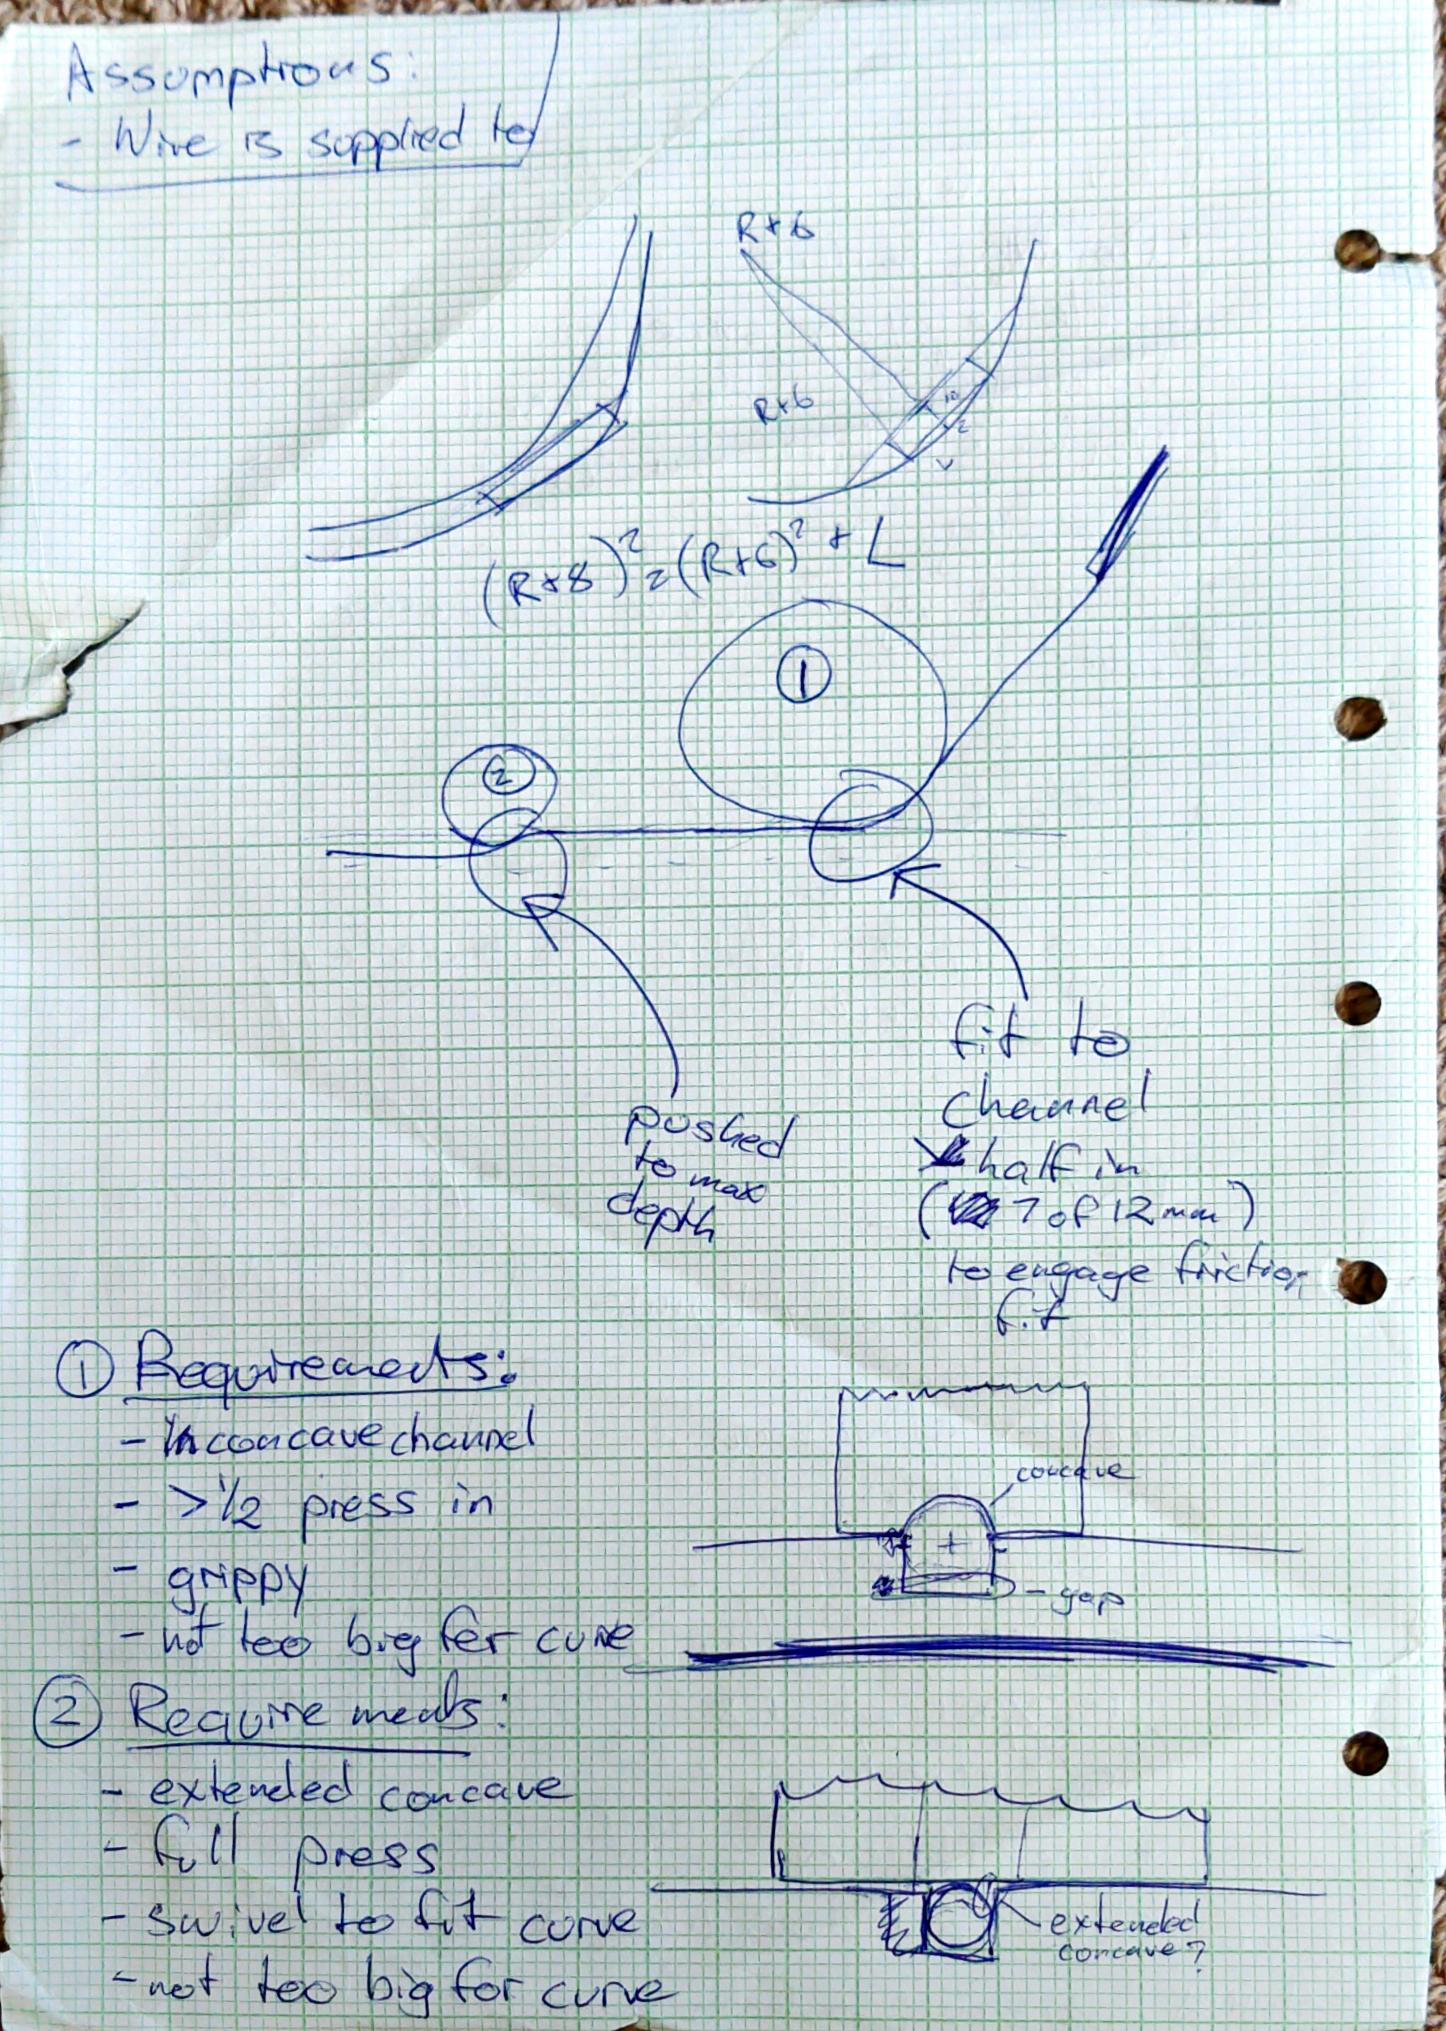 Assumptions:
- Wire is supplied to
R+6
R+6
10
2
(R+8)² = (R+6)² + L
①
②
fit to
channel
half in
(7 of 12mm)
to engage friction
fit
pushed
to max
depth
① Requirements:
- concave channel
- >1/2 press in
- grippy
- not too big for curve
concave
+
- gap
② Requirements:
- extended concave
- full press
- swivel to fit curve
- not too big for curve
extended
concave?